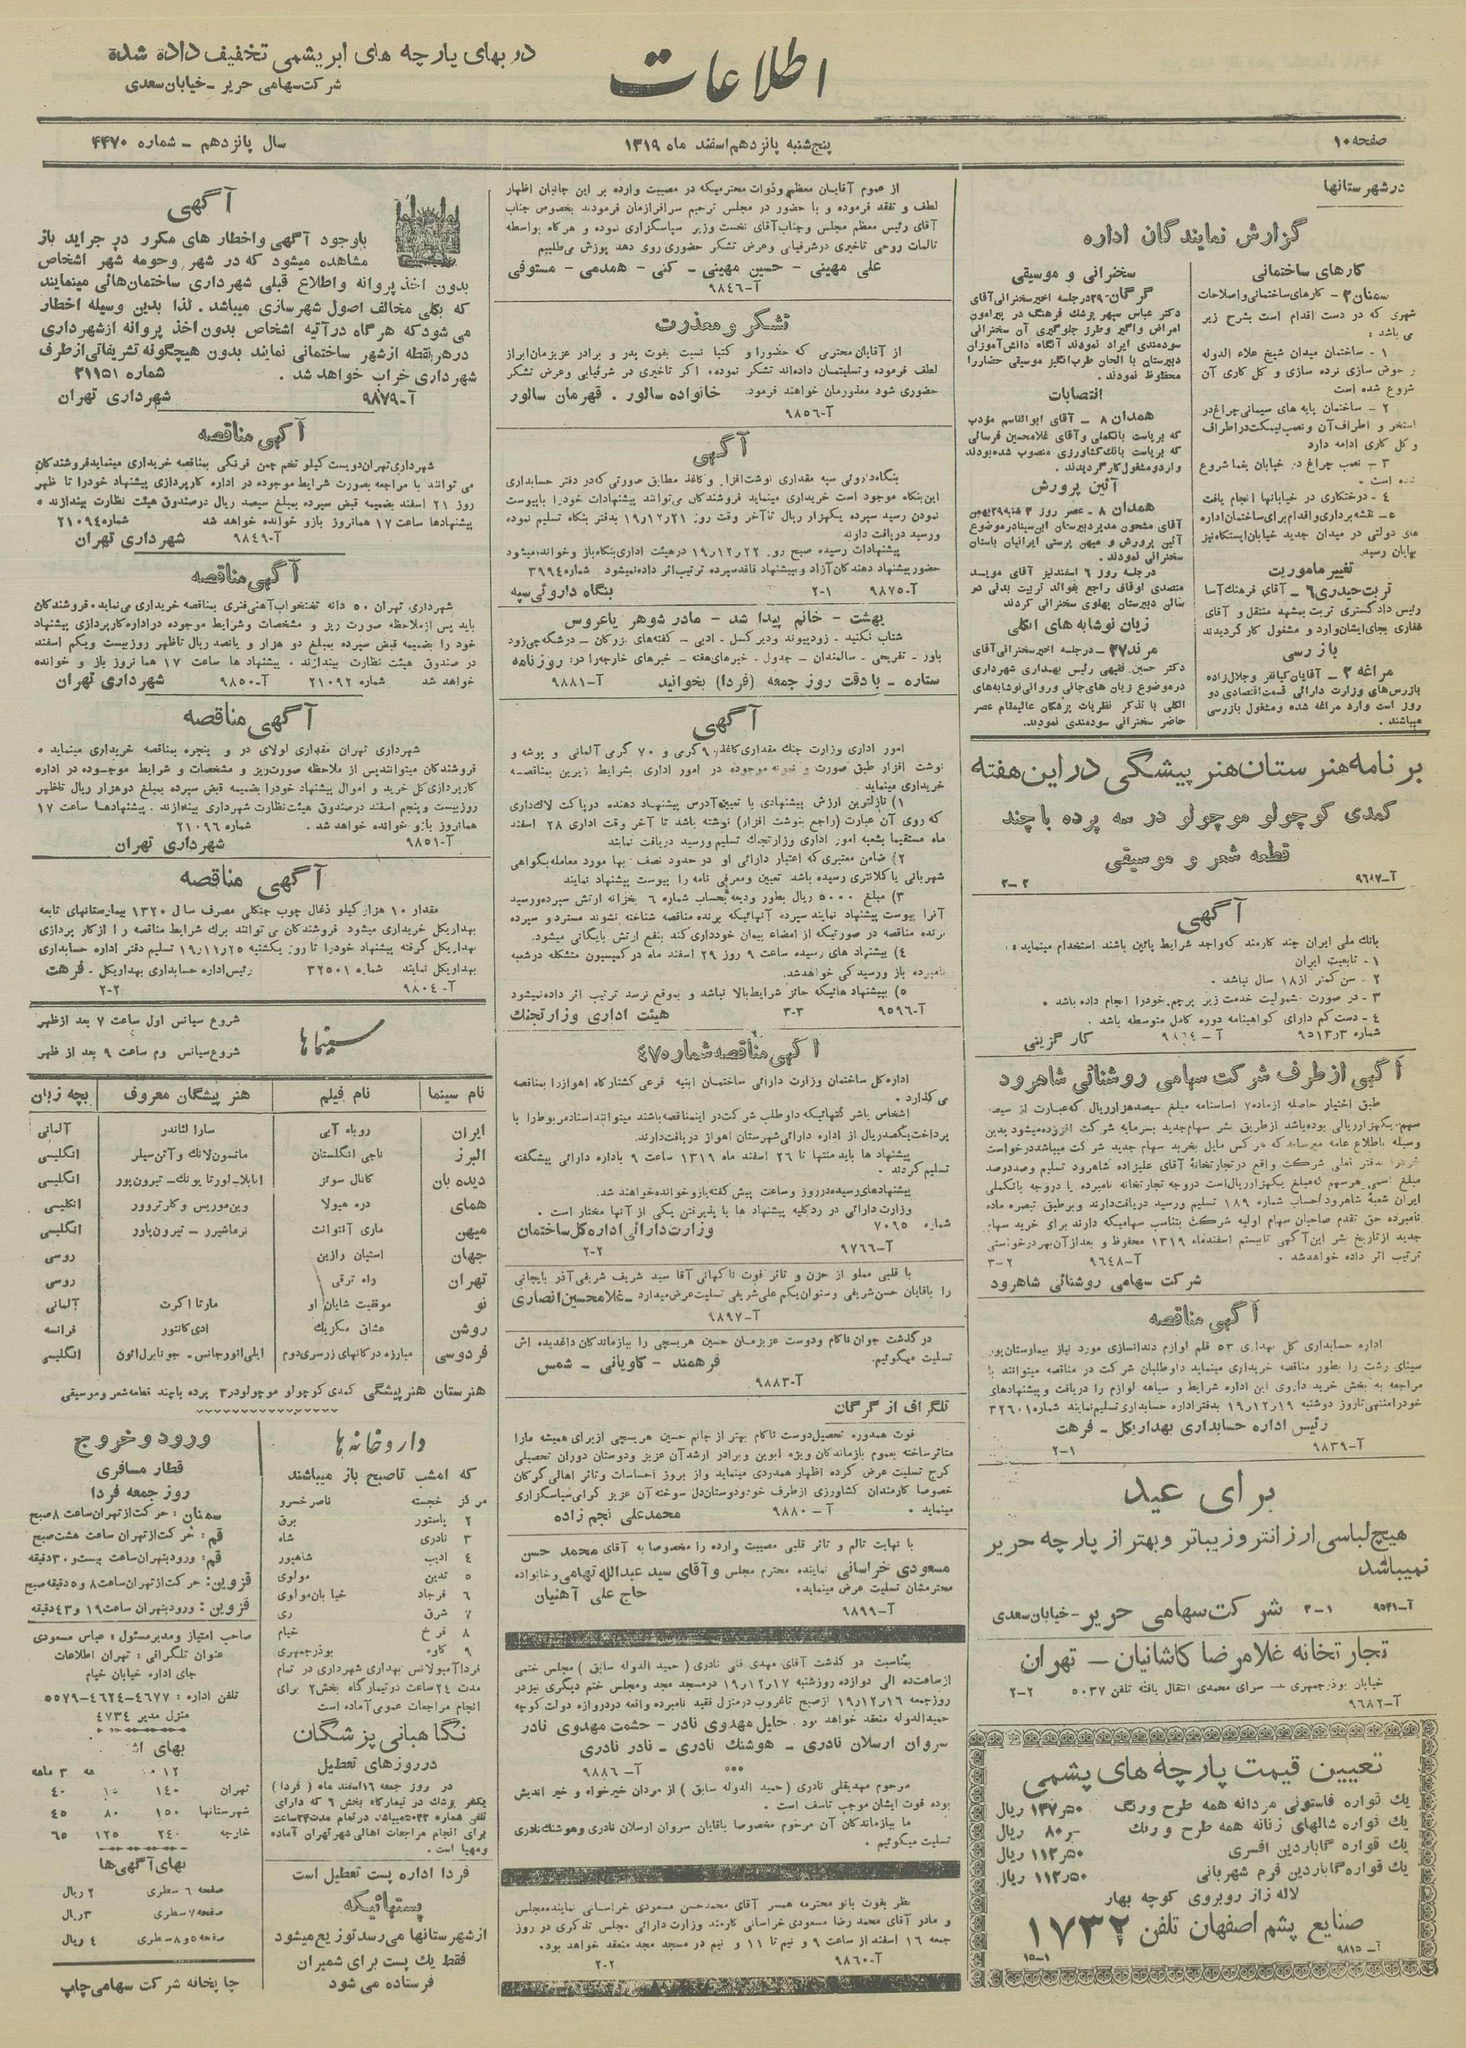 در بهای پارچه های ابریشمی تخفیف داده شده
شرکت سهامی حریر - خیابان سعدی
اطلاعات
صفحه ۱۰
پنج‌شنبه پانزدهم اسفند ماه ۱۳۱۹
سال پانزدهم - شماره ۴۴۷۰
در شهرستانها
گزارش نمایندگان اداره
کارهای ساختمانی
سمنان ۲ - کارهای ساختمانی و اصلاحات
شهری که در دست اقدام است بشرح زیر
می باشد :
۱ - ساختمان میدان شیخ علاء الدوله
و حوض سازی نرده سازی و گل کاری آن
شروع شده است
۲ - ساختمان پایه های سیمانی چراغ در
استخر و اطراف آن و نصب نیمکت در اطراف
و گل کاری ادامه دارد
۳ - نصب چراغ در خیابان یغما شروع
شده است .
۴ - درختکاری در خیابانها انجام یافت
۵ - نقشه برداری و اقدام برای ساختمان اداره
های دولتی در میدان جدید خیابان ایستگاه نیز
بپایان رسید.
تغییر ماموریت
تربت حیدری ۶ - آقای فرهنگ آسا
رئیس دادگستری تربت بمشهد منتقل و آقای
غفاری بجای ایشان وارد و مشغول کار گردیدند
بازرسی
مراغه ۲ - آقایان کیانفر و جلال زاده
بازرس های وزارت دارائی قسمت اقتصادی دو
روز است وارد مراغه شده و مشغول بازرسی
میباشند .
سخنرانی و موسیقی
گرگان - ۲۹ در جلسه اخیر سخنرانی آقای
دکتر عباس سپهر پزشک فرهنگ در پیرامون
امراض واگیر و طرز جلوگیری آن سخنرانی
سودمندی ایراد نمودند آنگاه دانش آموزان
دبیرستان با الحان طرب انگیز موسیقی حضار را
محظوظ نمودند .
انتصابات
همدان ۸ - آقای ابوالقاسم مؤدب
که بریاست بانک ملی و آقای غلامحسین فرسائی
که بریاست بانک کشاورزی منصوب شده بودند
وارد و مشغول کار گردیدند .
آئین پرورش
آقای مشحون مدیر دبیرستان ابن سینا در موضوع
آئین پرورش و میهن پرستی ایرانیان باستان
سخنرانی نمودند .
در جلسه روز ۶ اسفند نیز آقای موید
متصدی اوقاف راجع بفوائد تربیت بدنی در
سالن دبیرستان پهلوی سخنرانی کردند
زیان نوشابه های الکلی
مرند ۲۷ - در جلسه اخیر سخنرانی آقای
دکتر حسین فقیهی رئیس بهداری شهرداری
در موضوع زیان های جانی و روانی نوشابه های
الکلی با تذکر نظریات پزشکان عالیمقام عصر
حاضر سخنرانی سودمندی نمودند.
برنامه هنرستان هنرپیشگی در این هفته
کمدی کوچولو موچولو در سه پرده با چند
قطعه شعر و موسیقی
آ-۹۶۸۷ ۲-۲
آگهی
بانک ملی ایران چند کارمند که واجد شرایط پائین باشند استخدام مینماید :
۱ - تابعیت ایران
۲ - سن کمتر از ۱۸ سال نباشد .
۳ - در صورت مشمولیت خدمت زیر پرچم خود را انجام داده باشد .
۴ - دست کم دارای گواهینامه دوره کامل متوسطه باشد .
آ - ۹۸۶۴ کارگزینی
آگهی از طرف شرکت سهامی روشنائی شاهرود
طبق اختیار حاصله از ماده ۷ اساسنامه مبلغ سیصد هزار ریال که عبارت از سیصد
ایران شعبهٔ شاهرود حساب شماره ۱۸۹ تسلیم و رسید دریافت دارند و برطبق تبصره ماده
نامبرده حق تقدم صاحبان سهام اولیه شرکت بتناسب سهامیکه دارند برای خرید سهام
جدید از تاریخ نشر این آگهی تا بیستم اسفند ماه ۱۳۱۹ محفوظ و بعد از آن بهر درخواستی
ترتیب اثر داده خواهد شد . آ-۹۶۴۸ ۳-۲
شرکت سهامی روشنائی شاهرود
آگهی مناقصه
اداره حسابداری کل بهداری ۵۳ قلم لوازم دندانسازی مورد نیاز بیمارستان پور
سینای رشت را بطور مناقصه خریداری مینماید داوطلبان شرکت در مناقصه میتوانند با
مراجعه به بخش خرید داروی این اداره شرایط و سیاهه لوازم را دریافت و پیشنهادهای
خود را منتهی تا روز دوشنبه ۱۹/۱۲/۱۹ بدفتر اداره حسابداری تسلیم نمایند شماره ۳۲۶۰۱
رئیس اداره حسابداری بهداریکل - فرهت
آ-۹۸۳۹ ۲-۱
برای عید
هیچ لباسی ارزانتر و زیباتر و بهتر از پارچه حریر
نمیباشد
شرکت سهامی حریر - خیابان سعدی
تجارتخانه غلامرضا کاشانیان - تهران
خیابان بوذرجمهری - سرای محمدی انتقال یافته تلفن ۵۰۳۷ ۲-۲
آ-۹۶۸۲
تعیین قیمت پارچه های پشمی
یک قواره فاستونی مردانه همه طرح و رنگ ۱۳۷٫۵۰ ریال
یک قواره شالهای زنانه همه طرح و رنگ ۸۰٫- ریال
یک قواره گاباردین افسری ۱۱۲٫۵۰ ریال
یک قواره گاباردین فرم شهربانی ۱۱۲٫۵۰ ریال
لاله زار روبروی کوچه بهار
صنایع پشم اصفهان تلفن ۱۷۳۲
آ- ۹۸۱۵ ۱۵-۱
از عموم آقایان معظم و ذوات محترمیکه در مصیبت وارده بر این جانبان اظهار
لطف و تفقد فرموده و با حضور در مجلس ترحیم سرافرازمان فرمودند بخصوص جناب
آقای رئیس معظم مجلس و جناب آقای نخست وزیر سپاسگزاری نموده و هرگاه بواسطه
تالمات روحی تاخیری در شرفیابی و عرض تشکر حضوری روی دهد پوزش می طلبیم
علی مهینی - حسین مهینی - کنی - همدمی - مستوفی
آ-۹۸۴۶
تشکر و معذرت
از آقایان محترمی که حضورا و کتبا نسبت بفوت پدر و برادر عزیزمان ابراز
لطف فرموده و تسلیتمان داده‌اند تشکر نموده، اگر تاخیری در شرفیابی و عرض تشکر
حضوری شود معذورمان خواهند فرمود. خانواده سالور . قهرمان سالور
آ-۹۸۵۶
آگهی
بنگاه داروئی سپه مقداری نوشت افزار و کاغذ مطابق صورتی که در دفتر حسابداری
این بنگاه موجود است خریداری مینماید فروشندگان می توانند پیشنهادات خود را با پیوست
نمودن رسید سپرده یکهزار ریال تا آخر وقت روز ۱۹/۱۲/۲۱ بدفتر بنگاه تسلیم نموده
و رسید دریافت دارند
پیشنهادات رسیده صبح روز ۱۹/۱۲/۲۲ در هیئت اداری بنگاه باز و خوانده میشود
حضور پیشنهاد دهندگان آزاد و بپیشنهاد فاقد سپرده ترتیب اثر داده نمیشود شماره ۳۹۹۴
آ-۹۸۷۵ ۲-۱ بنگاه داروئی سپه
بهشت - خانم پیدا شد - مادر شوهر یا عروس
باور - تفریحی - سالمندان - جدول - خبرهای هفته - خبرهای خارجه را در : روزنامه
ستاره - با دقت روز جمعه (فردا) بخوانید آ-۹۸۸۱
آگهی
امور اداری وزارت جنگ مقداری کاغذ ۹۰ گرمی و ۷۰ گرمی آلمانی و پوشه و
نوشت افزار طبق صورت و نمونه موجوده در امور اداری بشرایط زیرین بمناقصه
خریداری مینماید
۱) نازلترین ارزش پیشنهادی با تعیین آدرس پیشنهاد دهنده در پاکت لاک داری
که روی آن عبارت (راجع بنوشت افزار) نوشته باشد تا آخر وقت اداری ۲۸ اسفند
ماه مستقیما بشعبه امور اداری وزارت جنگ تسلیم و رسید دریافت نمایند
۲) ضامن معتبری که اعتبار دارائی او در حدود نصف بها مورد معامله بگواهی
شهربانی یا کلانتری رسیده باشد تعیین و معرفی نامه را پیوست پیشنهاد نمایند
۳) مبلغ ۵۰۰۰ ریال بطور ودیعه بحساب شماره ۶ بخزانه ارتش سپرده و رسید
آنرا پیوست پیشنهاد نمایند سپرده آنهائیکه برنده مناقصه شناخته نشوند مسترد و سپرده
برنده مناقصه در صورتیکه از امضاء پیمان خودداری کند بنفع ارتش بایگانی میشود.
۴) پیشنهاد های رسیده ساعت ۹ روز ۲۹ اسفند ماه در کمیسیون متشکله در شعبه
نامبرده باز و رسیدگی خواهد شد.
۵) بپیشنهاد هائیکه حائز شرایط بالا نباشد و بموقع نرسد ترتیب اثر داده نمیشود
آ-۹۵۹۶ ۳-۳ هیئت اداری وزارت جنگ
آگهی مناقصه شماره ۴۷۵
اداره کل ساختمان وزارت دارائی ساختمان ابنیه فرعی کشتارگاه اهواز را بمناقصه
می گذارد .
پرداخت یکصد ریال از اداره دارائی شهرستان اهواز دریافت دارند.
پیشنهاد ها باید منتها تا ۲۶ اسفند ماه ۱۳۱۹ ساعت ۹ باداره دارائی پیشگفته
تسلیم گردند .
پیشنهادهای رسیده در روز و ساعت پیش گفته باز و خوانده خواهند شد.
وزارت دارائی در رد کلیه پیشنهاد ها یا پذیرفتن یکی از آنها مختار است .
شماره ۷۰۹۵ وزارت دارائی اداره کل ساختمان
آ-۹۷۶۶ ۲-۲
با قلبی مملو از حزن و تاثر فوت ناگهانی آقا سید شریف شریفی آذر بایجانی
را باقایان حسن شریفی و ستوان یکم علی شریفی تسلیت عرض میدارد - غلامحسین انصاری
آ-۹۸۹۷
درگذشت جوان ناکام و دوست عزیزمان حسین هریسچی را ببازماندگان داغدیده اش
تسلیت میگوئیم. فرهمند - کاویانی - شمس
آ-۹۸۸۳
تلگراف از گرگان
فوت همدوره تحصیلی دوست ناکام بهتر از جانم حسین هریسچی از برای همیشه مارا
متاثر ساخته بعموم بازماندگان ویژه ابوین و برادر ارشد آن عزیز و دوستان دوران تحصیلی
کرج تسلیت عرض کرده اظهار همدردی مینماید و از بروز احساسات و تاثر اهالی گرگان
خصوصا کارمندان کشاورزی از طرف خود و دوستان دل سوخته آن عزیز گرامی سپاسگزاری
مینماید . آ - ۹۸۸۰ محمدعلی نجم زاده
با نهایت تالم و تاثر قلبی مصیبت وارده را مخصوصا به آقای محمد حسن
مسعودی خراسانی نماینده محترم مجلس و آقای سید عبدالله تهامی و خانواده
محترمشان تسلیت عرض مینماید. حاج علی آهنیان
آ-۹۸۹۹
بمناسبت در گذشت آقای مهدی قلی نادری (حمید الدوله سابق) مجلس ختمی
از ساعت ده الی دوازده روز شنبه ۱۹/۱۲/۱۷ در مسجد مجد و مجلس ختم دیگری نیز در
روز جمعه ۱۹/۱۲/۱۶ از صبح تا غروب در منزل فقید نامبرده واقعه در دروازه دولت کوچه
حمیدالدوله منعقد خواهد بود. جلیل مهدوی نادر - حشمت مهدوی نادر
سروان ارسلان نادری - هوشنگ نادری - نادر نادری
آ- ۹۸۸۶
مرحوم مهدیقلی نادری (حمید الدوله سابق) از مردان خیرخواه و خیر اندیش
بوده فوت ایشان موجب تاسف است .
ما ببازماندگان آن مرحوم مخصوصا باقایان سروان ارسلان نادری و هوشنگ نادری
تسلیت میگوئیم .
نظر بفوت بانو محترمه همسر آقای محمد حسن مسعودی خراسانی نماینده مجلس
و مادر آقای محمد رضا مسعودی خراسانی کارمند وزارت دارائی مجلس تذکری در روز
جمعه ۱۶ اسفند از ساعت ۹ و نیم تا ۱۱ و نیم در مسجد مجد منعقد خواهد بود.
آ-۹۸۶۰ ۲-۲
آگهی
باوجود آگهی و اخطار های مکرر در جراید باز
مشاهده میشود که در شهر و حومه شهر اشخاص
بدون اخذ پروانه و اطلاع قبلی شهرداری ساختمان هائی مینمایند
که بکلی مخالف اصول شهرسازی میباشد . لذا بدین وسیله اخطار
می شود که هر گاه در آتیه اشخاص بدون اخذ پروانه از شهرداری
در هر نقطه از شهر ساختمانی نمایند بدون هیچگونه تشریفاتی از طرف
شهرداری خراب خواهد شد . شماره ۲۱۱۵۱
آ-۹۸۷۹ شهرداری تهران
آگهی مناقصه
شهرداری تهران دویست کیلو تخم چمن فرنگی بمناقصه خریداری مینماید فروشندگان
می توانند با مراجعه بصورت شرایط موجوده در اداره کارپردازی پیشنهاد خود را تا ظهر
روز ۲۱ اسفند بضمیمه قبض سپرده بمبلغ سیصد ریال در صندوق هیئت نظارت بیندازند .
پیشنهادها ساعت ۱۷ همانروز باز و خوانده خواهد شد شماره ۲۱۰۹۴
آ-۹۸۴۹ شهرداری تهران
آگهی مناقصه
شهرداری تهران ۵۰ دانه تختخواب آهنی فنری بمناقصه خریداری می نماید. فروشندگان
باید پس از ملاحظه صورت ریز و مشخصات و شرایط موجوده در اداره کارپردازی پیشنهاد
خود را بضمیمه قبض سپرده بمبلغ دو هزار و پانصد ریال تا ظهر روز بیست ویکم اسفند
در صندوق هیئت نظارت بیندازند . پیشنهاد ها ساعت ۱۷ همانروز باز و خوانده
خواهد شد شماره ۲۱۰۹۲ آ-۹۸۵۰ شهرداری تهران
آگهی مناقصه
شهرداری تهران مقداری لولای در و پنجره بمناقصه خریداری مینماید .
فروشندگان میتوانند پس از ملاحظه صورت ریز و مشخصات و شرایط موجوده در اداره
کارپردازی کل خرید و اموال پیشنهاد خود را بضمیمه قبض سپرده بمبلغ دو هزار ریال تا ظهر
روز بیست و پنجم اسفند در صندوق هیئت نظارت شهرداری بیندازند . پیشنهادها ساعت ۱۷
همانروز باز و خوانده خواهد شد . شماره ۲۱۰۹۶
آ-۹۸۵۱ شهرداری تهران
آگهی مناقصه
مقدار ۱۰ هزار کیلو ذغال چوب جنگلی مصرف سال ۱۳۲۰ بیمارستانهای تابعه
بهداریکل خریداری میشود. فروشندگان می توانند برگ شرایط مناقصه را از کار پردازی
بهداریکل گرفته پیشنهاد خود را تا روز یکشنبه ۱۹/۱۱/۲۵ تسلیم دفتر اداره حسابداری
بهداریکل نمایند شماره ۳۲۵۰۱ رئیس اداره حسابداری بهداریکل - فرهت
آ- ۹۸۰۴ ۲-۲
سینماها
شروع سیانس اول ساعت ۷ بعد از ظهر
شروع سیانس دوم ساعت ۹ بعد از ظهر
نام سینما نام فیلم هنر پیشگان معروف بچه زبان
ایران روباه آبی سارا لئاندر آلمانی
البرز ناجی انگلستان ماتسون لانگ و آتن سیلر انگلیسی
دیده بان کانال سوئز انابلا - لورتا یونگ - تیرون پور انگلیسی
همای دره هیولا وین موریس و کارتروور انگلیسی
میهن ماری آنتوانت نرماشیرر - تیرون پاور انگلیسی
جهان استپان رازین روسی
تهران راه ترقی روسی
نو موفقیت شایان او مارتا اگرت آلمانی
روشن عشاق مکزیک ادی کانتور فرانسه
فردوسی مبارزه در کانهای زر سری دوم ایلی انور جانس - جونابرل ائون انگلیسی
هنرستان هنرپیشگی کمدی کوچولو موچولو در ۳ پرده با چند قطعه شعر و موسیقی
داروخانه ها
که امشب تا صبح باز میباشند
مرکز خجسته ناصر خسرو
۲ پاستور برق
۳ نادری شاه
۴ ادیب شاهپور
۵ تدین مولوی
۶ فرجاد خیابان مولوی
۷ شرق ری
۸ فرخ خیام
۹ کاوه بوذرجمهری
فردا آمبولانس بهداری شهرداری در تمام
مدت ۲۴ ساعت در تیمارگاه بخش ۲ برای
انجام مراجعات عمومی آماده است
نگاهبانی پزشگان
در روزهای تعطیل
در روز جمعه ۱۶ اسفند ماه (فردا)
یکنفر پزشک در تیمارگاه بخش ۶ که دارای
تلفن شماره ۵۰۴۲ میباشد در تمام مدت ۲۴ ساعت
برای انجام مراجعات اهالی شهر تهران آماده
و مهیا است .
فردا اداره پست تعطیل است
پستهائیکه
از شهرستانها می رسد توزیع میشود
فقط یک پست برای شمیران
فرستاده می شود
ورود و خروج
قطار مسافری
روز جمعه فردا
سمنان : حرکت از تهران ساعت ۸ صبح
قم : حرکت از تهران ساعت هشت صبح
قم : ورود بتهران ساعت بیست و ۳۰ دقیقه
قزوین : حرکت از تهران ساعت ۸ و ۵ دقیقه صبح
قزوین : ورود بتهران ساعت ۱۹ و ۴۳ دقیقه
صاحب امتیاز و مدیر مسئول : عباس مسعودی
عنوان تلگرافی : تهران اطلاعات
جای اداره خیابان خیام
تلفن اداره : ۴۶۷۷-۴۶۲۴-۵۵۷۹
منزل مدیر ۴۷۳۴
تهران ۱۴۰ ۴۰
شهرستانها ۱۵۰ ۸۰ ۴۵
خارجه ۲۴۰ ۱۲۵ ۶۵
بهای آگهی ها
صفحه ۶ سطری ۲ ریال
صفحه ۷ سطری ۳ ریال
صفحه ۵ و ۸ سطری ۴ ریال
چاپخانه شرکت سهامی چاپ